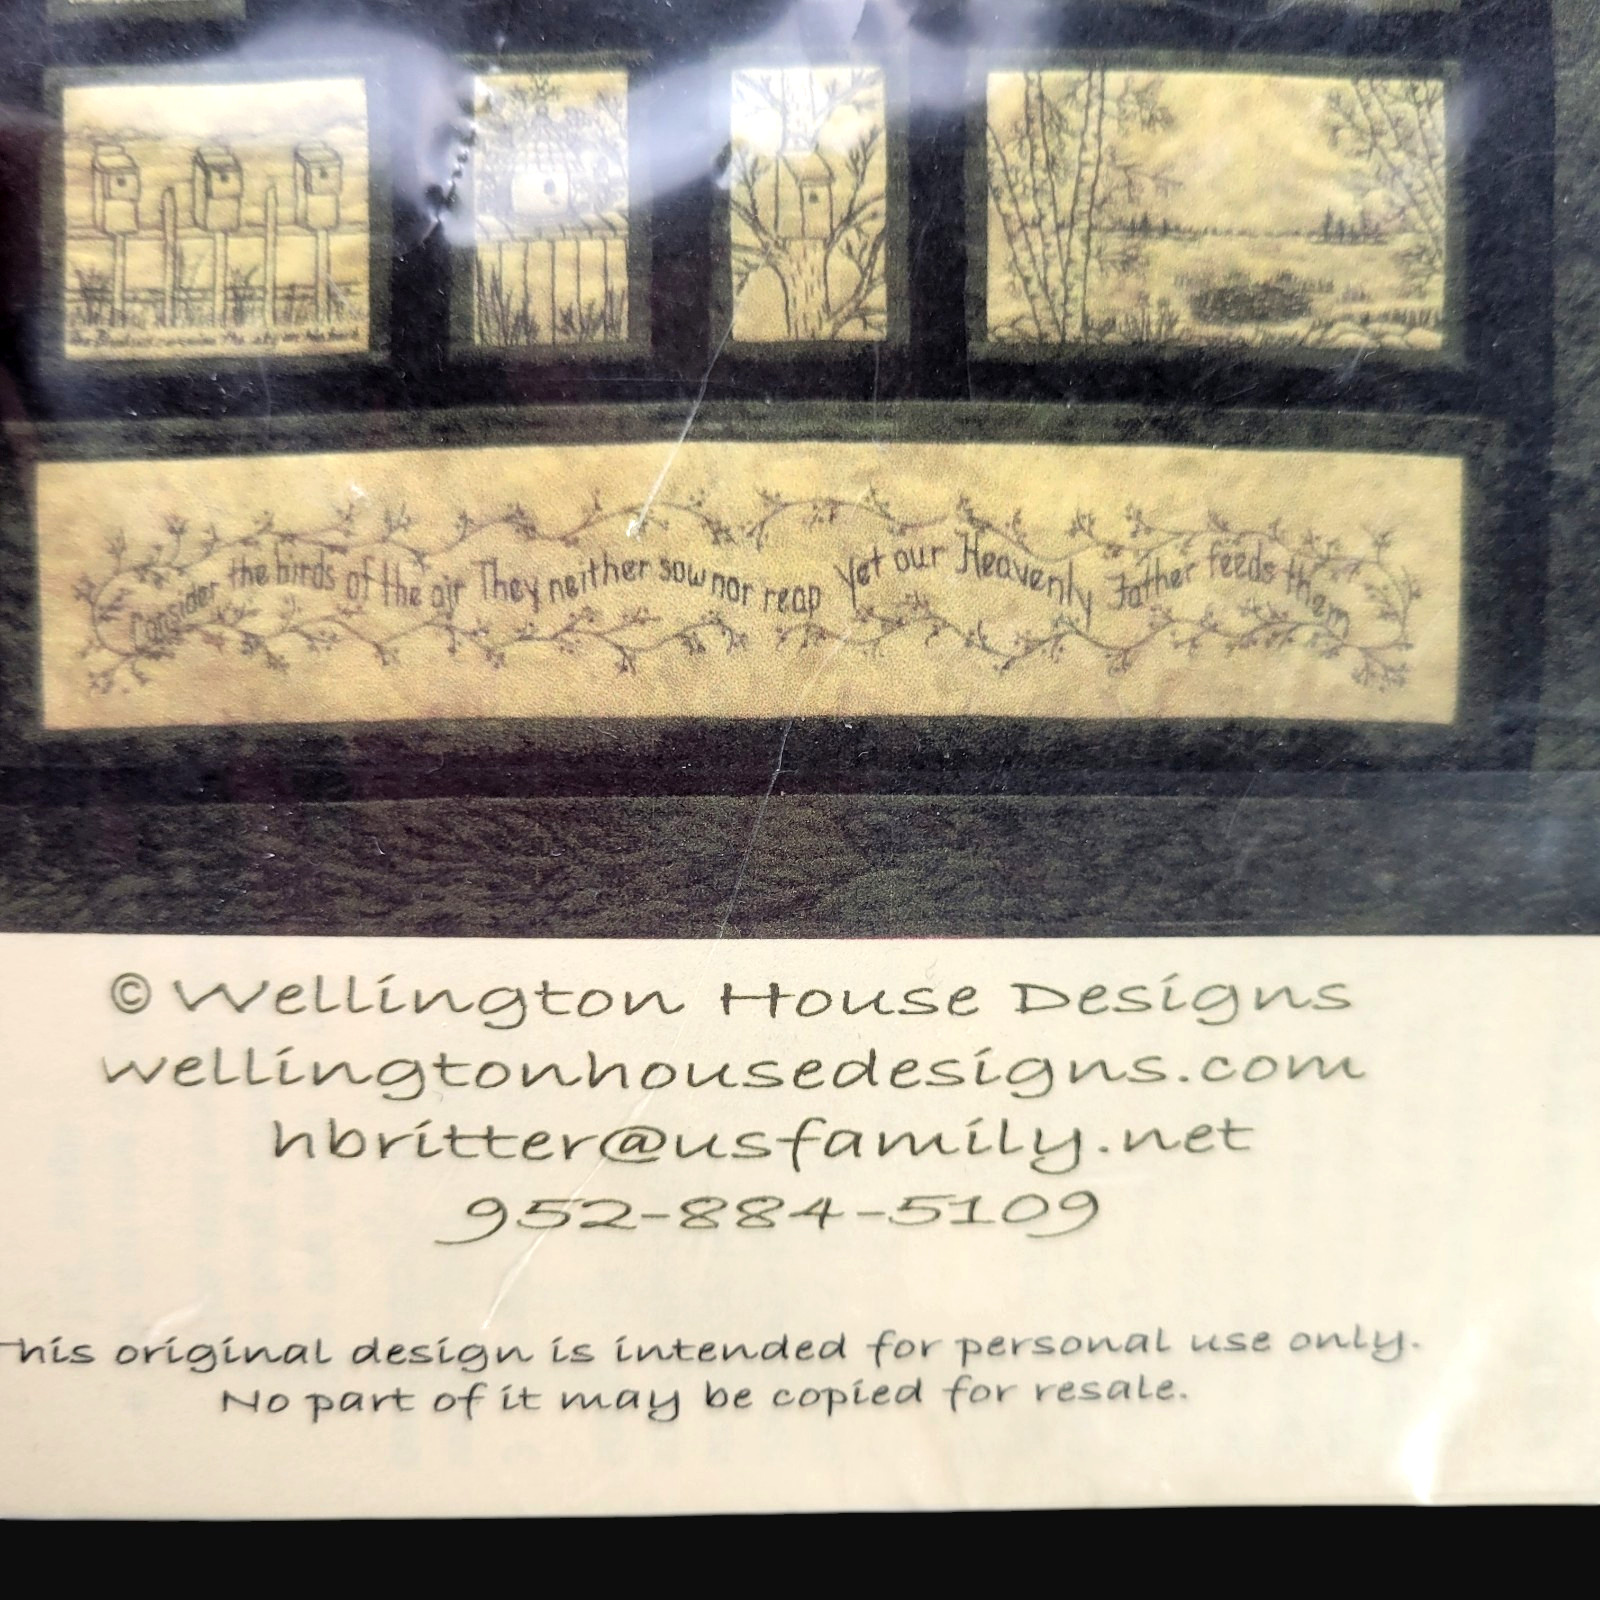 The Bluebird carries the sky on his back
Consider the birds of the air They neither sow nor reap Yet our Heavenly Father feeds them
© Wellington House Designs
wellingtonhousedesigns.com
hbritter@usfamily.net
952-884-5109
This original design is intended for personal use only.
No part of it may be copied for resale.